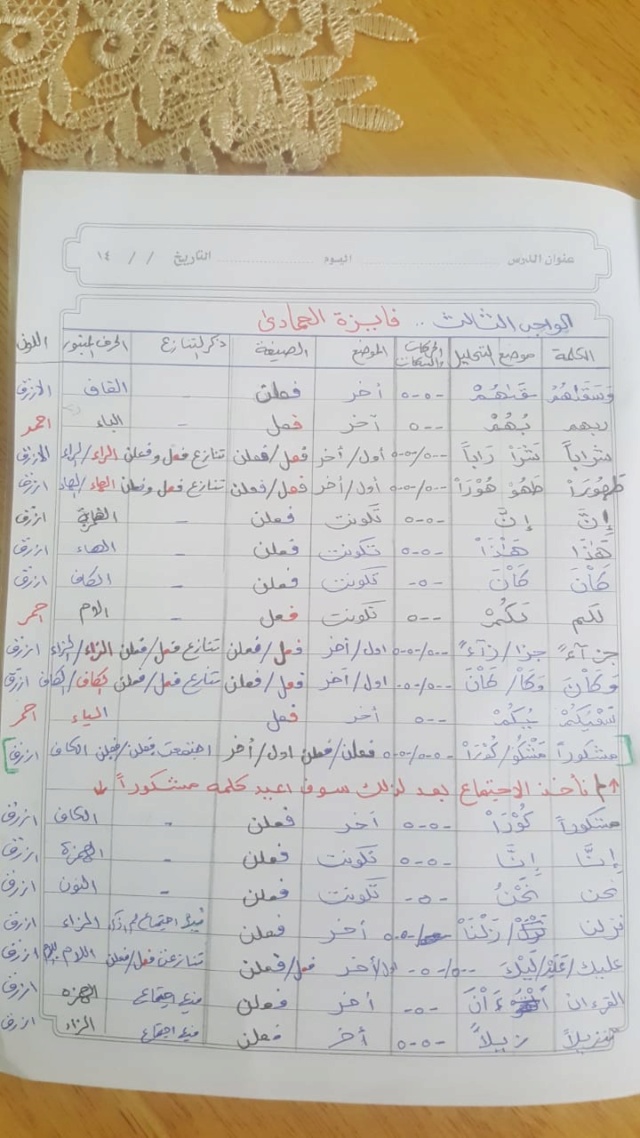 عنوان الدرس ............ اليوم ............ التاريخ / / ١٤
الواجب الثالث .. فايزة الحمادي
الكلمة موضع التحليل الحركات والسكنات الموضع الصيغة ذكر التنازع الحرف المنبور اللون
وَسَقَاهُمْ قَاهُمْ -٥-٥ آخر فعلن - القاف الازرق
ربهم بُهُمْ --٥ آخر فعل - الباء احمر
شراباً شَرَاْ رَاباً --٥/-٥-٥ أول/أخر فعل/فعلن تنازع فعل وفعلن الراء/الراء الازرق
طَهُورَاً طَهُو هُوْرَاْ --٥/-٥-٥ أول/أخر فعل/فعلن تنازع فعل وفعلن الهاء/الهاء ازرق
إنَّ إنَّ -٥- تكونت فعلن - الهمزة ازرق
هَذَا هَاْذَاْ -٥-٥ تكونت فعلن - الهاء ازرق
كَانَ كَاْنَ -٥- تكونت فعلن - الكاف ازرق
لكم لَكُمْ --٥ تكونت فعل - الام احمر
جزآءً جزا/زآءً --٥/-٥-٥ اول/أخر فعل/فعلن تنازع فعل/فعلن الزاء/الزاء ازرق
وَكَاْنَ وَكَاْ/كَاْنَ --٥/-٥- اول/أخر فعل/فعلن تنازع فعل/فعلن الكاف/الكاف ازرق
سَعْيُكُمْ يُكُمْ --٥ أخر فعل - الياء احمر
مشكوراً مَشْكُوْ/كُوْرَاْ -٥-٥/-٥-٥ فعلن/فعلن اول/أخر اجتمعت فعلن/فعلن الكاف ازرق
نأخذ الاجتماع بعد لذلك سوف اعيد كلمه مشكوراً
مشكوراً كُوْرَاْ -٥-٥ آخر فعلن - الكاف ازرق
إنَّا إنَّا -٥-٥ تكونت فعلن - الهمزة ازرق
نحن نَحْنُ -٥- تكونت فعلن - النون ازرق
نزلنا زَلْنَاْ -٥-٥ أخر فعلن فيه اجتماع الزاء ازرق
عليك عَلَيْ/لَيْكَ --٥/-٥- اول/أخر فعل/فعلن تنازعن فعل/فعلن اللام ازرق
القرءان ءَاْنَ -٥- أخر فعلن فيه اجتماع الهمزه ازرق
تنزيلاً زيلاً -٥-٥ أخر فعلن فيه اجتماع الزاء ازرق